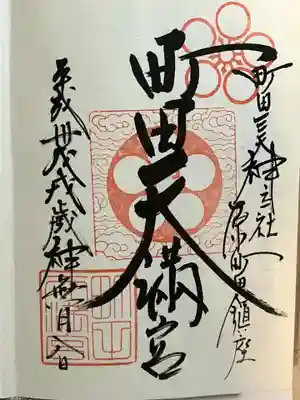 町田三天神社
原町田鎮座
町田天満宮
平成丗戊戌歳神無月八日